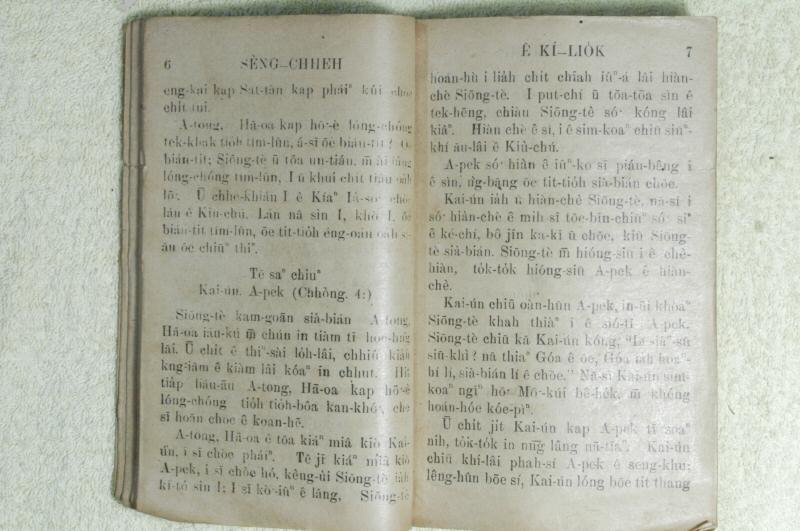 6 SÈNG–CHHEH
eng-kai kap Sat-tàn kap pháiⁿ kúi chòe
chit tui.
A-tong, Hā-oa kap hō͘-è lóng-chóng
tek-khak tio̍h tîm-lûn, á-sī ōe bián-tit?
bián-tit; Siōng-tè ū tōa un-tián, m̄ ài lâng
lóng-chóng tîm-lûn, I ū khui chit tiâu oa̍h
lō͘. Ū chhe-khián I ê Kíaⁿ Iâ-so͘ chòe
lán ê Kiù-chú. Lán nā sìn I, khò I, ōe
bián-tit tîm-lûn, ōe tit-tio̍h éng-oán oa̍h
āu ōe chiūⁿ thiⁿ.
Tē saⁿ chiuⁿ
Kai-ún. A-pek (Chhòng. 4:)
Siōng-tè kam-goān sià-bián A-tong,
Hā-oa iáu-kú m̄ chún in tiàm tī hoe-hn̂g
lāi. Ū chit ê thiⁿ-sài lo̍h-lâi, chhiú kia̍h
kng-iām ê kiàm lâi kóaⁿ in chhut.
tia̍p bāu-āu A-tong, Hā-oa kap hō͘-è
lóng-chóng tio̍h tio̍h-bôa kan-khó͘, che
sī hoān chōe ê koan-hē.
A-tong, Hā-oa ê tōa kiáⁿ miâ kiò Kai-
ún, i sī chòe pháiⁿ. Tē jī kiáⁿ miâ kiò
A-pek, i sī chòe hó, kèng-ùi Siōng-tè
kí-tó sìn I; I sī kò͘-iûⁿ ê lâng, Siōng-tè
Ê KÍ–LIO̍K 7
hoan-hù i lia̍h chit chiah iûⁿ-á lâi hiàn-
chè Siōng-tè. I put-chí ū tōa-tōa sìn ê
tek-hēng, chiàu Siōng-tè só͘ kóng lâi
kiâⁿ. Hiàn chè ê sî, i ê sim-koaⁿ chin siūⁿ-
khí āu-lâi ê Kiù-chú.
A-pek só͘ hiàn ê iûⁿ-ko sī piān-bêng i
ê sìn, n̄g-bāng ōe tit-tio̍h sià-bián chōe.
Kai-ún ia̍h ū hiàn-chè Siōng-tè, nā-sī i
só͘ hiàn-chè ê mih sī tōe-bīn-chiūⁿ só͘ siⁿ
ê ké-chí, bô jīn ka-kī ū chōe, kiû Siōng-
tè sià-bián. Siōng-tè m̄ hióng-siū i ê chè-
hiàn, to̍k-to̍k hióng-siū A-pek ê hiàn-
chè.
Kai-ún chiū oàn-hūn A-pek, in-ūi khòaⁿ
Siōng-tè khah thiàⁿ i ê sió-tī A-pek.
Siōng-tè chiū kā Kai-ún kóng, “Lí siáⁿ-sū
siū-khì? nā thiaⁿ Góa ê ōe, Góa ia̍h hoaⁿ-
hí lí, sià-bián lí ê chōe.” Nā-sī Kai-ún sim-
koaⁿ ngīⁿ hō͘ Mô͘-kúi bê-he̍k, m̄ khéng
hoán-hóe kóe-pìⁿ.
Ū chit ji̍t Kai-ún kap A-pek tī soaⁿ
nih, to̍k-to̍k in nn̄g lâng nā-tiāⁿ. Kai-ún
chiū khí-lâi phah-sí A-pek ê seng-khu;
lêng-hûn bōe sí, Kai-ún lóng bōe tit thang